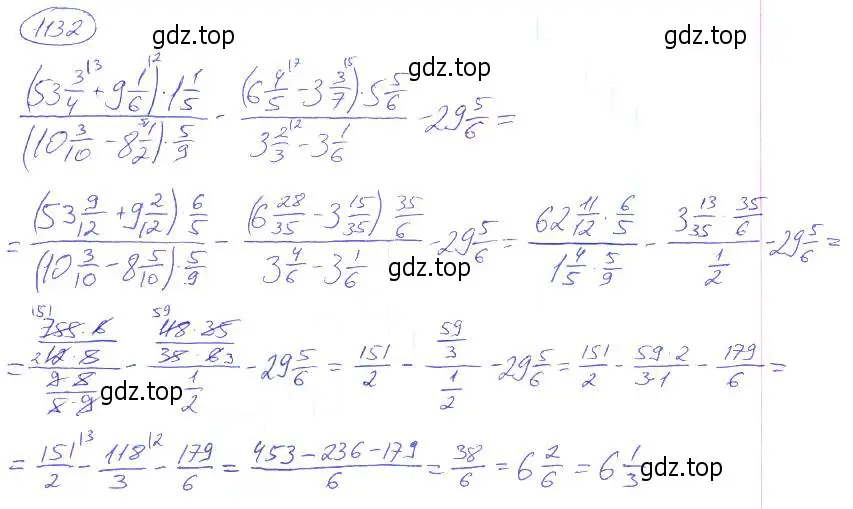 1132
gdz.top
gdz.top
gdz.top
\frac{(53\frac{3}{4}^{\backslash 3} + 9\frac{1}{6}^{\backslash 2}) \cdot 1\frac{1}{5}}{(10\frac{3}{10} - 8\frac{1}{2}^{\backslash 5}) \cdot \frac{5}{9}} - \frac{(6\frac{4}{5}^{\backslash 7} - 3\frac{3}{7}^{\backslash 5}) \cdot 5\frac{5}{6}}{3\frac{2}{3}^{\backslash 2} - 3\frac{1}{6}} - 29\frac{5}{6} =
= \frac{(53\frac{9}{12} + 9\frac{2}{12}) \cdot \frac{6}{5}}{(10\frac{3}{10} - 8\frac{5}{10}) \cdot \frac{5}{9}} - \frac{(6\frac{28}{35} - 3\frac{15}{35}) \cdot \frac{35}{6}}{3\frac{4}{6} - 3\frac{1}{6}} - 29\frac{5}{6} = \frac{62\frac{11}{12} \cdot \frac{6}{5}}{1\frac{4}{5} \cdot \frac{5}{9}} - \frac{3\frac{13}{35} \cdot \frac{35}{6}}{\frac{1}{2}} - 29\frac{5}{6} =
gdz.top
= \frac{\frac{755 \cdot 6}{12 \cdot 5}}{\frac{9 \cdot 5}{5 \cdot 9}} - \frac{\frac{118 \cdot 35}{35 \cdot 6}}{\frac{1}{2}} - 29\frac{5}{6} = \frac{151}{2} - \frac{\frac{59}{3}}{\frac{1}{2}} - 29\frac{5}{6} = \frac{151}{2} - \frac{59 \cdot 2}{3 \cdot 1} - \frac{179}{6} =
gdz.top
= \frac{151}{2}^{\backslash 3} - \frac{118}{3}^{\backslash 2} - \frac{179}{6} = \frac{453 - 236 - 179}{6} = \frac{38}{6} = 6\frac{2}{6} = 6\frac{1}{3}
gdz.top